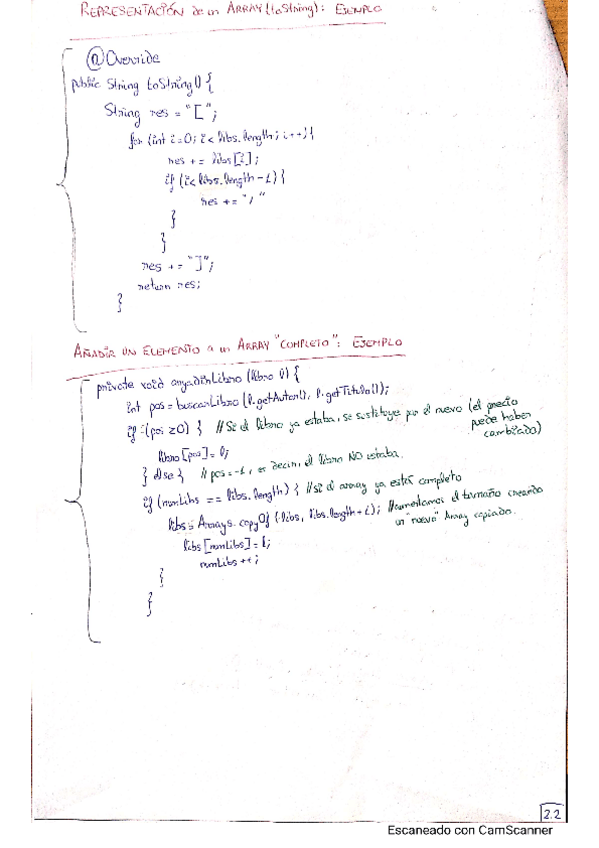 REPRESENTACIÓN de un ARRAY (toString): EJEMPLO
@Override
public String toString() {
String res = "[";
for (int i=0; i< libs.length; i++){
res += libs[i];
if (i< libs.length -1) {
res += ", "
}
}
res += "]";
return res;
}
AÑADIR UN ELEMENTO a un ARRAY "COMPLETO": EJEMPLO
private void anyadirLibro (Libro l) {
int pos = buscarLibro (l.getAutor(), l.getTitulo());
if (pos ≥0) { // Si el libro ya estaba, se sustituye por el nuevo (el precio
puede haber
cambiado)
libro [pos] = l;
} else { // pos = -1, es decir, el libro NO estaba.
if (numLibs == libs.length) { // si el array ya está completo
libs = Arrays.copyOf (libs, libs.length + 1); // aumentamos el tamaño creando
un "nuevo" Array copiado.
libs [numLibs] = l;
numLibs ++;
}
}
2.2
Escaneado con CamScanner